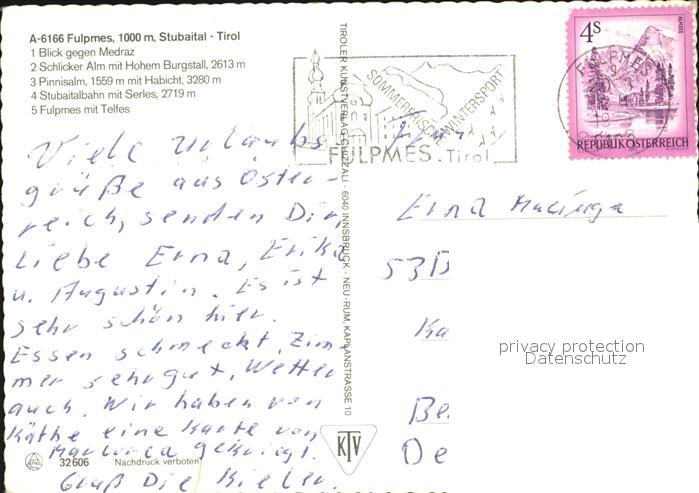 A-6166 Fulpmes, 1000 m, Stubaital - Tirol
1 Blick gegen Medraz
2 Schlicker Alm mit Hohem Burgstall, 2613 m
3 Pinnisalm, 1559 m mit Habicht, 3280 m
4 Stubaitalbahn mit Serles, 2719 m
5 Fulpmes mit Telfes
Viele Urlaubs-
grüße aus Öster-
reich, senden Dir,
Liebe Erna, Erika
u. Augustin. Es ist
sehr schön hier.
Essen schmeckt, Zim-
mer sehr gut, Wetter
auch. Wir haben von
Käthe eine Karte von
Mallorca gekriegt.
Gruß Die Kieler.
32606 Nachdruck verboten
TIROLER KUNSTVERLAG CHIZZALI · 6040 INNSBRUCK · NEU-RUM, KAPLANSTRASSE 10
KTV
SOMMERFRISCHE WINTERSPORT
FULPMES. Tirol
4S
ALMSEE
FULPMES
REPUBLIK ÖSTERREICH
Frau
Erna
53B
Ka
Be
De
privacy protection
Datenschutz